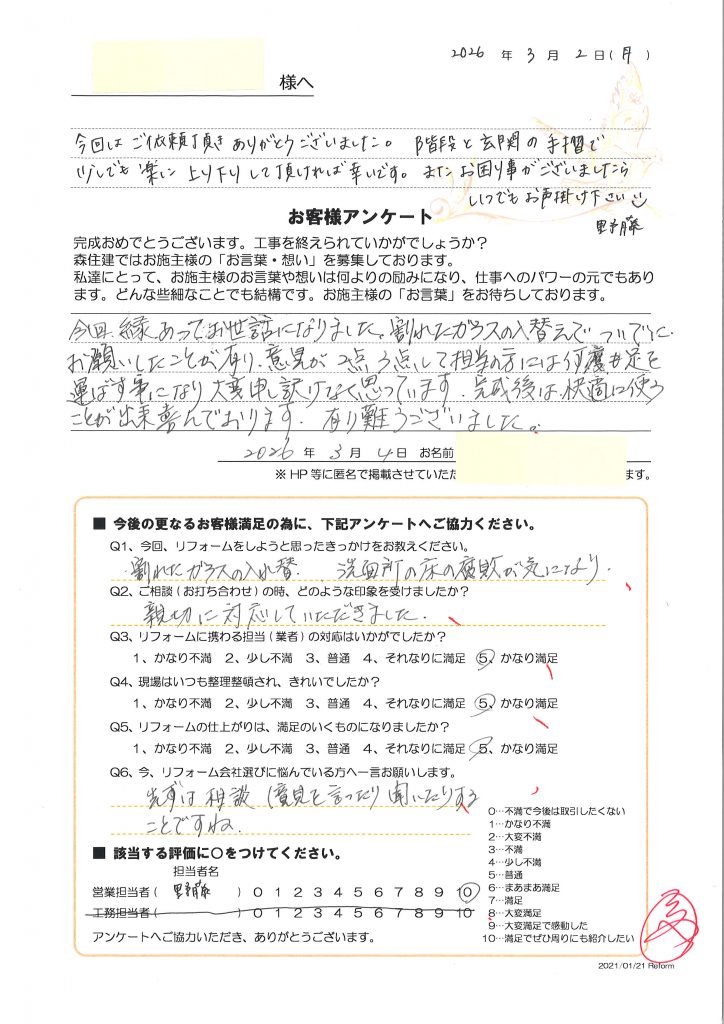 2026 年 3 月 2 日(月)
様へ
今回はご依頼頂きありがとうございました。階段と玄関の手摺で
少しでも楽に上り下りして頂ければ幸いです。またお困り事がございましたら
いつでもお声掛け下さい
お客様アンケート
完成おめでとうございます。工事を終えられていかがでしょうか?
森住建ではお施主様の「お言葉・想い」を募集しております。
私達にとって、お施主様のお言葉や想いは何よりの励みになり、仕事へのパワーの元でもあり
ます。どんな些細なことでも結構です。お施主様の「お言葉」をお待ちしております。
今回縁あってお世話になりました。割れたガラスの入替えで ついでに
お願いしたことが有り、意見が2点3点して担当の方には何度も足を
運ばす事になり大変申し訳けなく思っています。完成後は快適に使う
ことが出来喜んでおります。有り難うございました。
2026 年 3 月 4 日 お名前
※HP等に匿名で掲載させていただ ます。
■ 今後の更なるお客様満足の為に、下記アンケートへご協力ください。
Q1、今回、リフォームをしようと思ったきっかけをお教えください。
割れたガラスの入れ替 洗面所の床の腐敗が気になり.
Q2、ご相談(お打ち合わせ)の時、どのような印象を受けましたか?
親切に対応していただきました.
Q3、リフォームに携わる担当(業者)の対応はいかがでしたか?
1、かなり不満 2、少し不満 3、普通 4、それなりに満足 5、かなり満足
Q4、現場はいつも整理整頓され、きれいでしたか?
1、かなり不満 2、少し不満 3、普通 4、それなりに満足 5、かなり満足
Q5、リフォームの仕上がりは、満足のいくものになりましたか?
1、かなり不満 2、少し不満 3、普通 4、それなりに満足 5、かなり満足
Q6、今、リフォーム会社選びに悩んでいる方へ一言お願いします。
まずは相談 (意見を言ったり聞いたりする
ことですね.
■ 該当する評価に○をつけてください。
担当者名
営業担当者( ) 0 1 2 3 4 5 6 7 8 9 10
工務担当者( ) 0 1 2 3 4 5 6 7 8 9 10
アンケートへご協力いただき、ありがとうございます。
0…不満で今後は取引したくない
1…かなり不満
2…大変不満
3…不満
4…少し不満
5…普通
6…まあまあ満足
7…満足
8…大変満足
9…大変満足で感動した
10…満足でぜひ周りにも紹介したい
2021/01/21 Reform